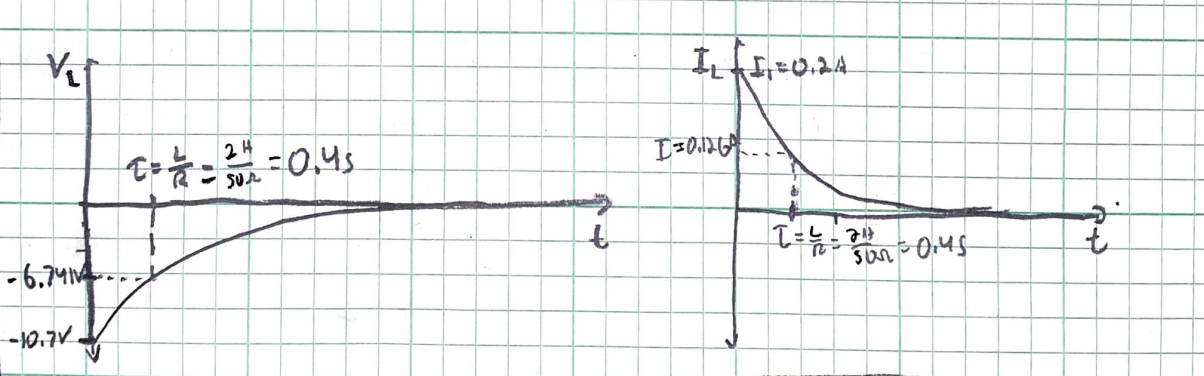 V_L
τ = L/R = 2H/50Ω = 0.4s
t
-6.741V
-10.7V
I_L I_1 = 0.2A
I = 0.126A
τ = L/R = 2H/50Ω = 0.4s
t